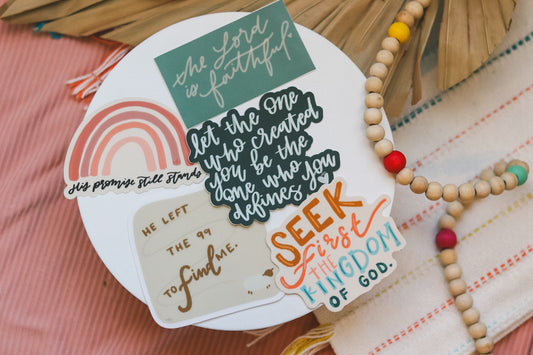 the Lord
is faithful.
His promise still stands
let the One
who created
you be the
One who
defines you
HE LEFT
THE 99
TO find ME.
SEEK
first
THE
KINGDOM
OF GOD.